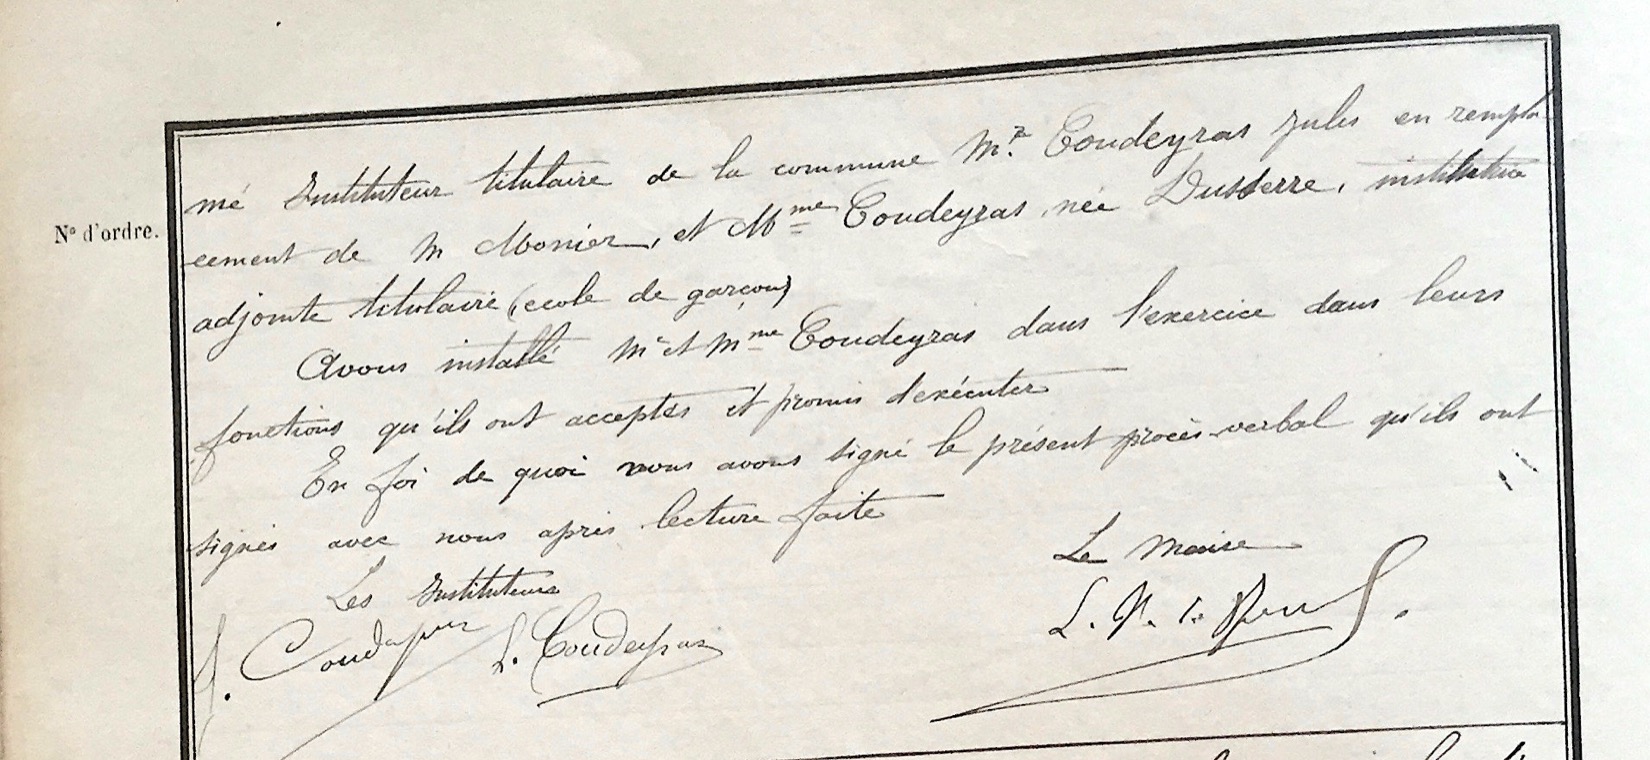 mé Instituteur titulaire de la commune Mr. Coudeyras Jules en rempla
N° d'ordre.
cement de M Monier, et Mme Coudeyras née Dusserre, institutrice
adjointe titulaire (ecole de garçons)
Avons installé Mr et Mme Coudeyras dans l'exercice dans leurs
fonctions qu'ils ont acceptés et promis d'exécuter
En foi de quoi nous avons signé le présent procès-verbal qu'ils ont
signés avec nous après lecture faite
Le Maire
Les Instituteurs
J. Coudeyras L. Coudeyras